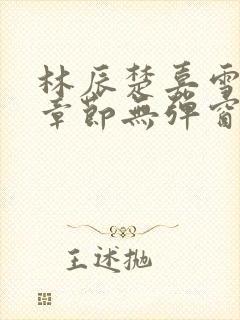 林辰楚嘉雪
章節無彈窗
王述抛